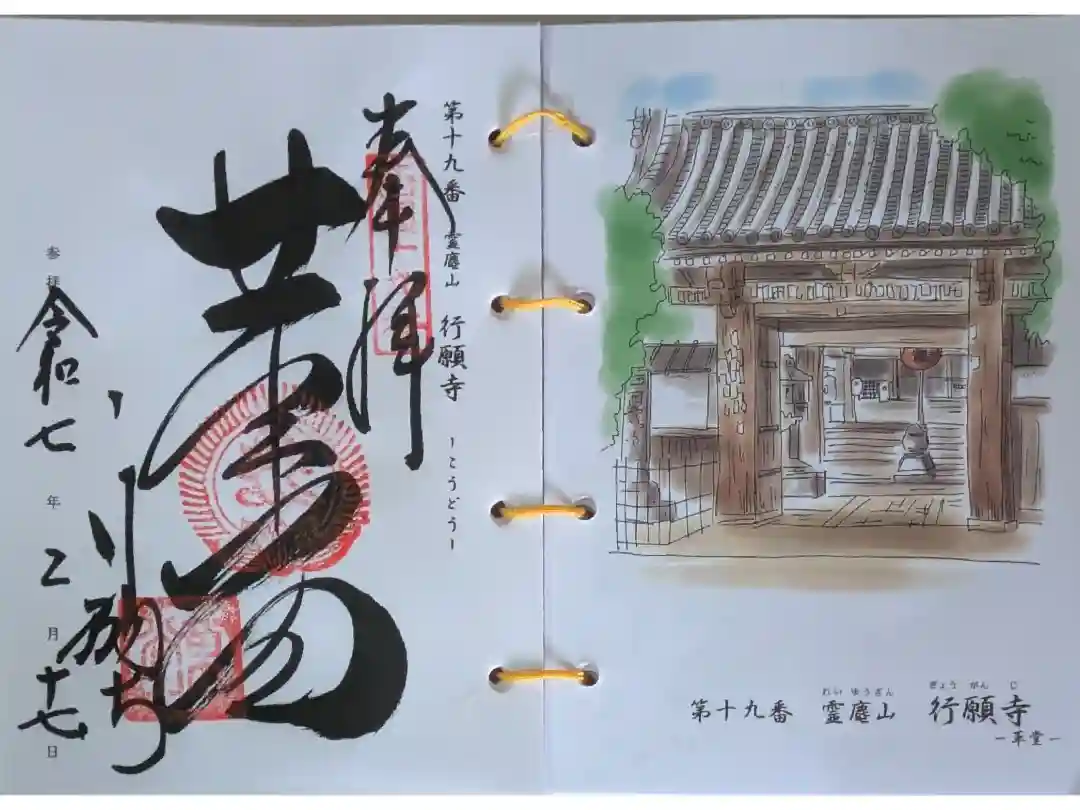 第十九番 霊麀山 行願寺 -こうどう-
奉拝
行願寺
参拝 令和七年二月十七日
れいゆうざん ぎょうがんじ
第十九番 霊麀山 行願寺
-革堂-